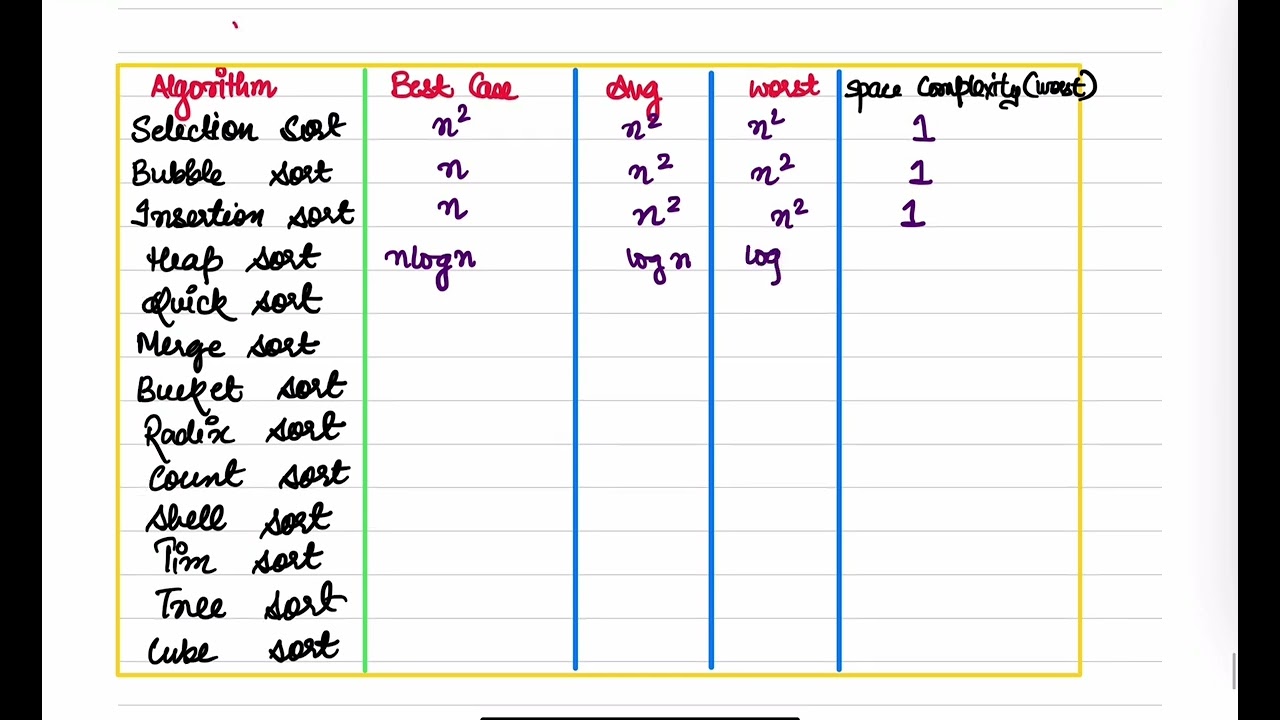 Algorithm Best Case Avg worst space complexity (worst)
Selection Sort n² n² n² 1
Bubble sort n n² n² 1
Insertion sort n n² n² 1
Heap sort nlogn log n log
Quick sort
Merge sort
Bucket sort
Radix sort
Count sort
Shell sort
Tim sort
Tree sort
Cube sort